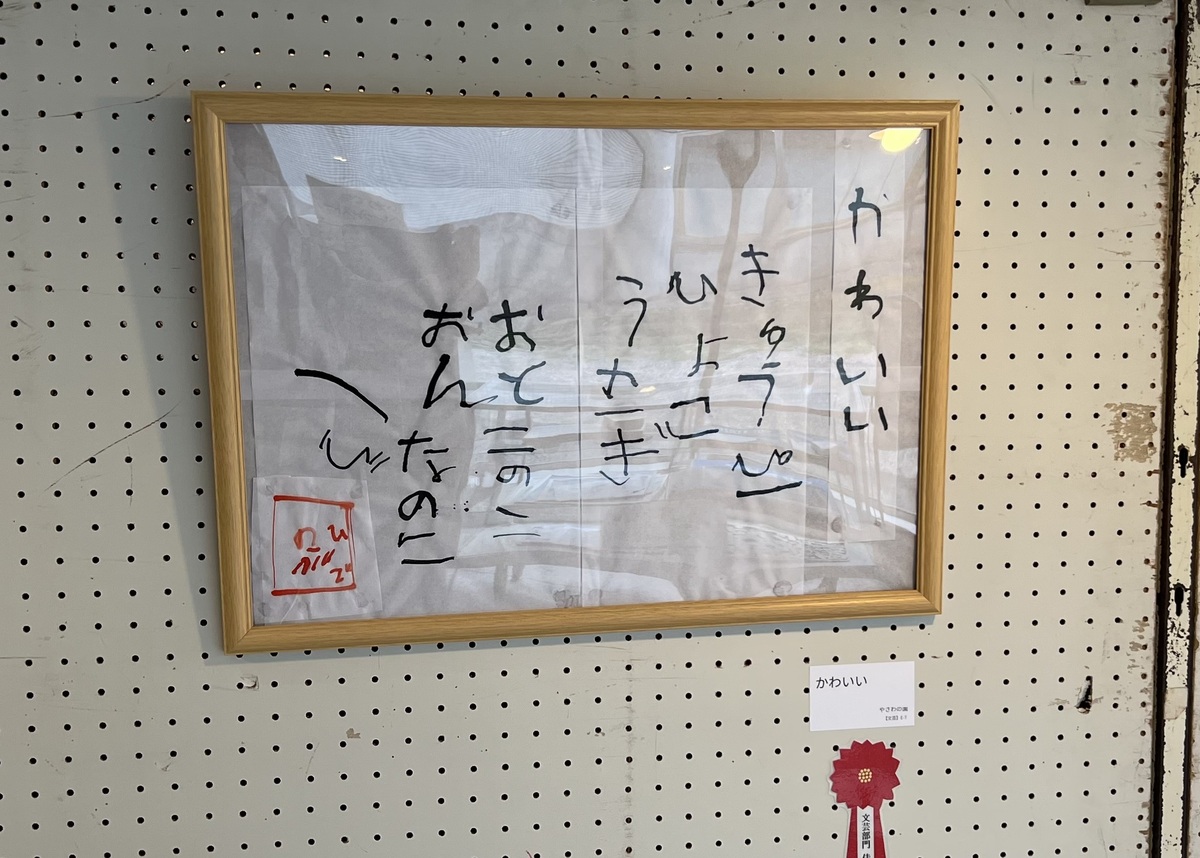 かわいい
きゅうぴー
ひよこ
うさぎ
おとこのこ
おんなのこ
へび
かわいい
やさわの園
文芸部門